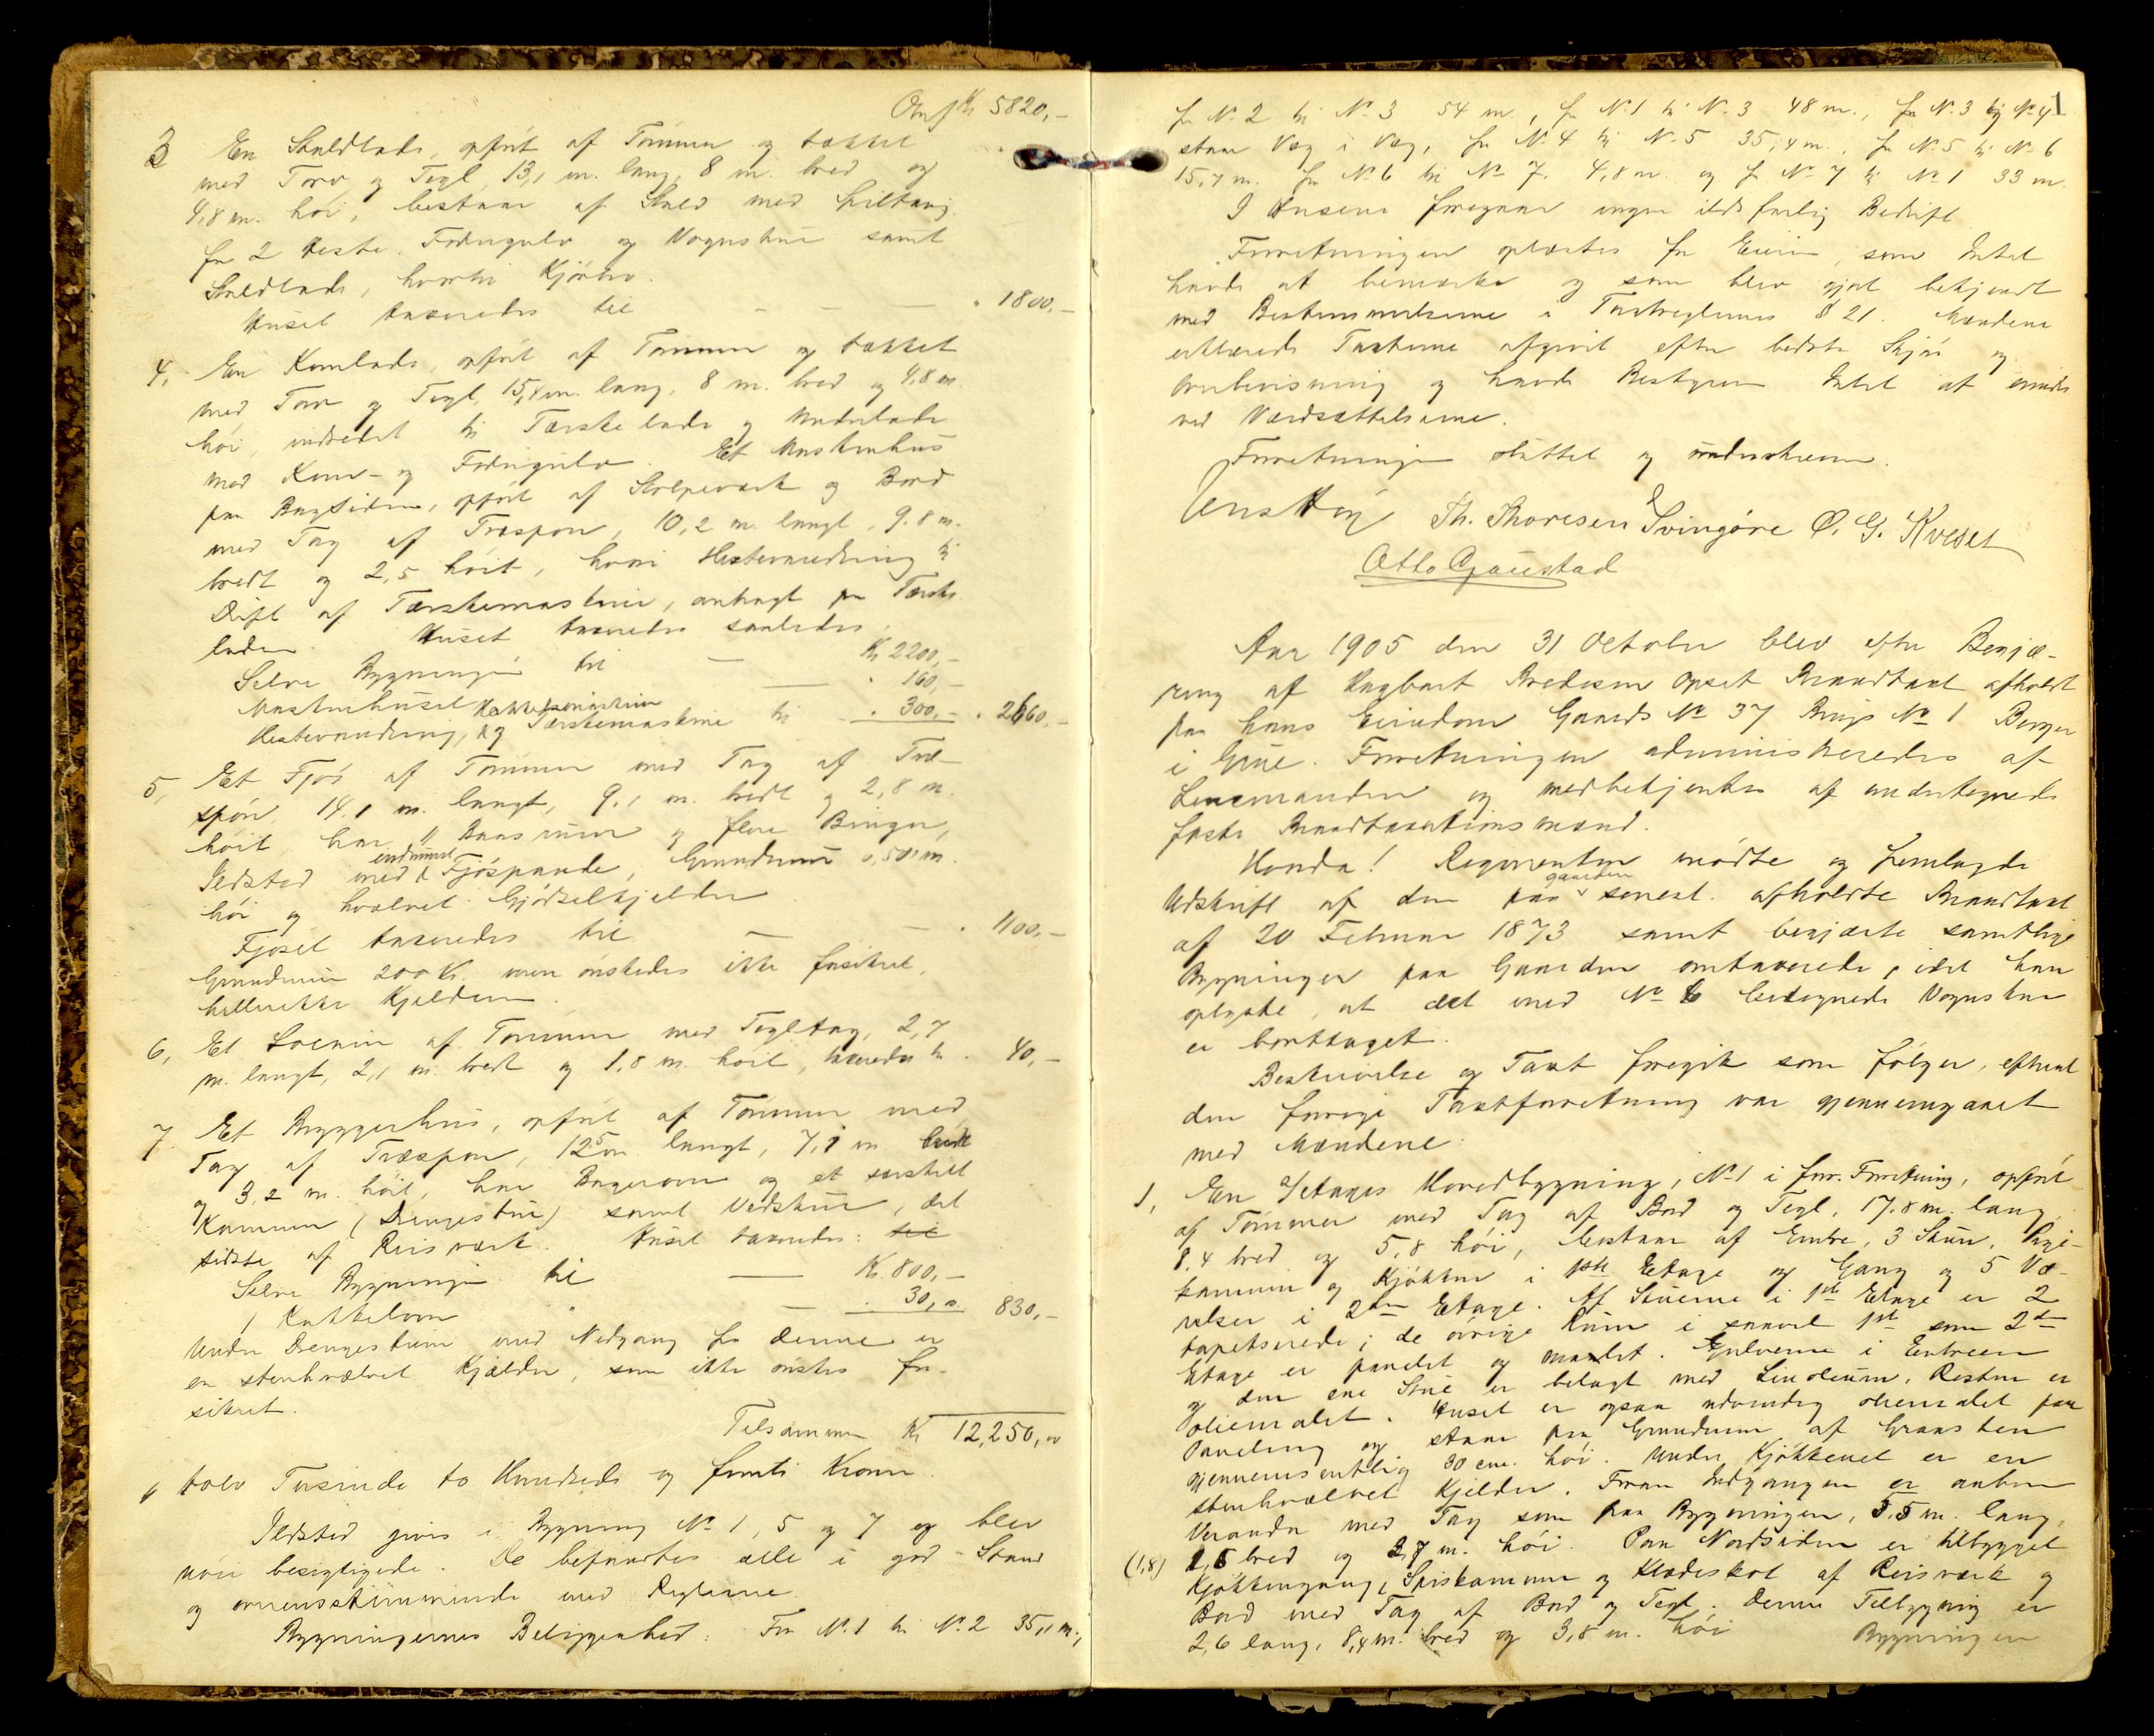 Overf Kr 5820,-
3 En Staldlade, opført af Tømmer og tækket
med Torv og Tegl, 13,1 m. lang, 8 m. bred og
4,8 m. høi, bestaar af Stald med Spiltaug
for 2 Heste, Fodergulv og Vognskur samt
Staldlade, hvortil Kjørbro.
Huset taxeredes til - - - " 1800,-
4, En Kornlade, opført af Tømmer og tækket
med Torv og Tegl, 15,4 m. lang, 8 m. bred og 4,8 m.
høi, indredet til Tærskelade og Underlade
med Korn- og Fodergulv. Et Maskinhus
paa Bagsiden, opført af Stolpeværk og Bord
med Tag af Træspon, 10,2 m. langt, 9.8 m.
bredt og 2,5 høit, hvori Hestevandring til
Drift af Tærskemaskine, anbragt paa Tærske
laden. Huset taxeredes saaledes:
Selve Bygningen til — Kr 2200,-
Maskinhuset — " 160,-
Hestevandring, Hakkelsmaskine og Tærskemaskine til " 300,- " 2660,-
5, Et Fjøs af Tømmer med Tag af Træ-
spon, 14.1 m. langt, 9.1 m. bredt og 2,8 m.
høit, har 11 Baasrum og flere Binger,
Ildsted med indmuret Fjøspande, Grundmur 0,50 m.
høi og hvælvet Gjødselkjelder
Fjøset taxeredes til — - " 1100,-
Grundmuren 200 Kr. men ønskedes ikke forsikret,
hellerikke Kjelderen.
6, Et Locum af Tømmer med Tegltag, 2,7
m. langt, 2,1 m. bredt og 1,8 m. høit, taxeredes til " 40,-
7 Et Bryggerhus, opført af Tømmer med
Tag af Træspon, 12,5 m. langt, 7,1 m bredt
og 3,2 m. høit, har Bagerovn og et særskilt
Kammer (Drengestue) samt Vedskur, det
sidste af Reisværk. Huset taxeredes: til
Selve Bygningen til — Kr. 800,-
1 Kakkelovn " — " 30,- " 830,-
Under Drengestuen med Nedgang fra denne er
en stenhvælvet Kjælder, som ikke ønskes for-
sikret.
Tilsammen Kr 12,250,00
tolv Tusinde to Hundrede og femti Kroner.
Ildsted gives i Bygning No 1, 5 og 7 og blev
nøie besigtigede. De befandtes alle i god Stand
og overensstemmende med Reglerne.
Bygningernes Beliggenhed: Fra No. 1 til No. 2 35,1 m.,
fra No. 2 til No. 3 54 m., fra No. 1 til No. 3 48 m., fra No. 3 og No 4
staar Væg i Væg, fra No. 4 til No. 5 35,4 m., fra No. 5 til No 6
15,7 m. fra No 6 til No 7. 4,8 m og fra No 7 til No 1 33 m.
I Husene foregaar ingen ildsfarlig Bedrift
Forretningen oplæstes for Eieren, som Intet
havde at bemærke og som blev gjort bekjendt
med Bestemmelserne i Taxtreglernes § 21. Mændene
erklærede Taxterne afgivet efter bedste Skjøn og
Overbevisning og havde Bestyreren Intet at erindre
ved Værdsættelserne.
Forretningen sluttet og underskreven.
Jens Høy Th. Thoresen Svingøre O. G. Kveset
Otto Gaustad
Aar 1905 den 31 October blev efter Begjæ-
ring af Hagbart Bredesen Opset Brandtaxt afholdt
paa hans Eiendom Gaards No 37 Brugs No 1 Berger
i Grue. Forretningen administreredes af
Lensmanden og medbekjentes af undertegnede
faste Brandtaxationsmænd.
Honda! Reqvirenten mødte og fremlagde
Udskrift af den paa gaarden senest afholdte Brandtaxt
af 20 Februar 1873 samt begjærte samtlige
Bygninger paa Gaarden omtaxerede, idet han
oplyste, at det med No 6 betegnede Vognskur
er borttaget.
Beskrivelse og Taxt foregik som følger, efterat
den forrige Taxtforretning var gjennemgaaet
med Mændene:
1, En 2 etages Hovedbygning, No 1 i forr. Forretning, opført
af Tømmer med Tag af Bord og Tegl, 17.8 m. lang,
8,4 bred og 5,8 høi, bestaar af Entre, 3 Stuer, Pige-
kammer og Kjøkken i 1ste Etage og Gang og 5 Væ-
relser i 2den Etage. Af Stuerne i 1ste Etage er 2
tapetserede; de øvrige Rum i saavel 1ste som 2den
Etage er panelet og malet. Gulvene i Entreen
og den ene Stue er belagt med Linoleum, Resten er
oliemalet. Huset er ogsaa udvendig oliemalet paa
Paneling og staar paa Grundmur af Graasten
gjennemsnitlig 30 cm. høi. Under Kjøkkenet er en
stenhvælvet Kjelder. Foran Indgangen er aaben
Veranda med Tag som paa Bygningen, 3,5 m. lang,
(1,8) 2,6 bred og 3,7 m. høi. Paa Nordsiden er tilbygget
Kjøkkengang, Spiskammer og Klædeskot af Reisværk og
Bord med Tag af Bord og Tegl. Denne Tilbygning er
2,6 lang, 8,4 m. bred og 3,8 m. høi Bygningen